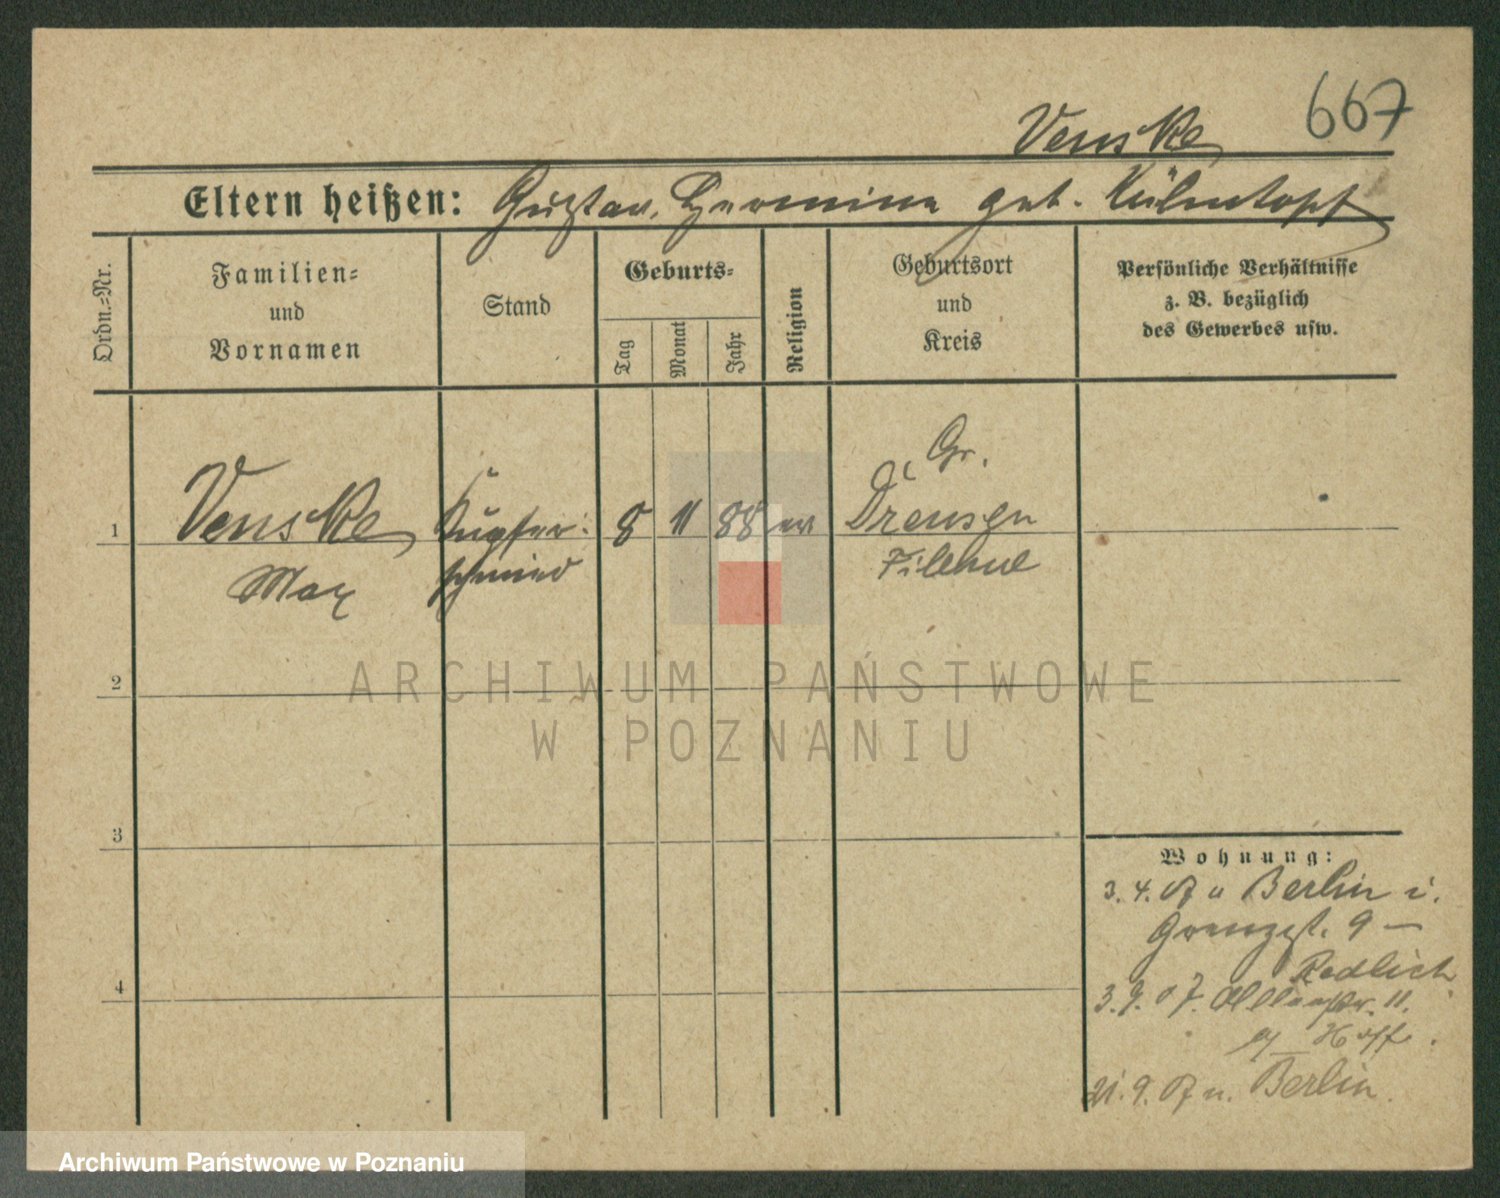 667
Venske
Eltern heißen: Gustav, Hermine geb. Kühntopf
Ordn.=Nr.
Familien=
und
Vornamen
Stand
Geburts=
Tag
Monat
Jahr
Religion
Geburtsort
und
Kreis
Persönliche Verhältnisse
z. B. bezüglich
des Gewerbes usw.
Gr.
1 Venske Kupfer= 8 11 88 ev Drensen
Max schmied Filehne
2
3
4
Wohnung:
3. 4. 07 n Berlin
Grenzst. 9 –
Redlich
3. 9. 07. 11.
Hoff.
21. 9. 07 n. Berlin.
ARCHIWUM PAŃSTWOWE
W POZNANIU
Archiwum Państwowe w Poznaniu